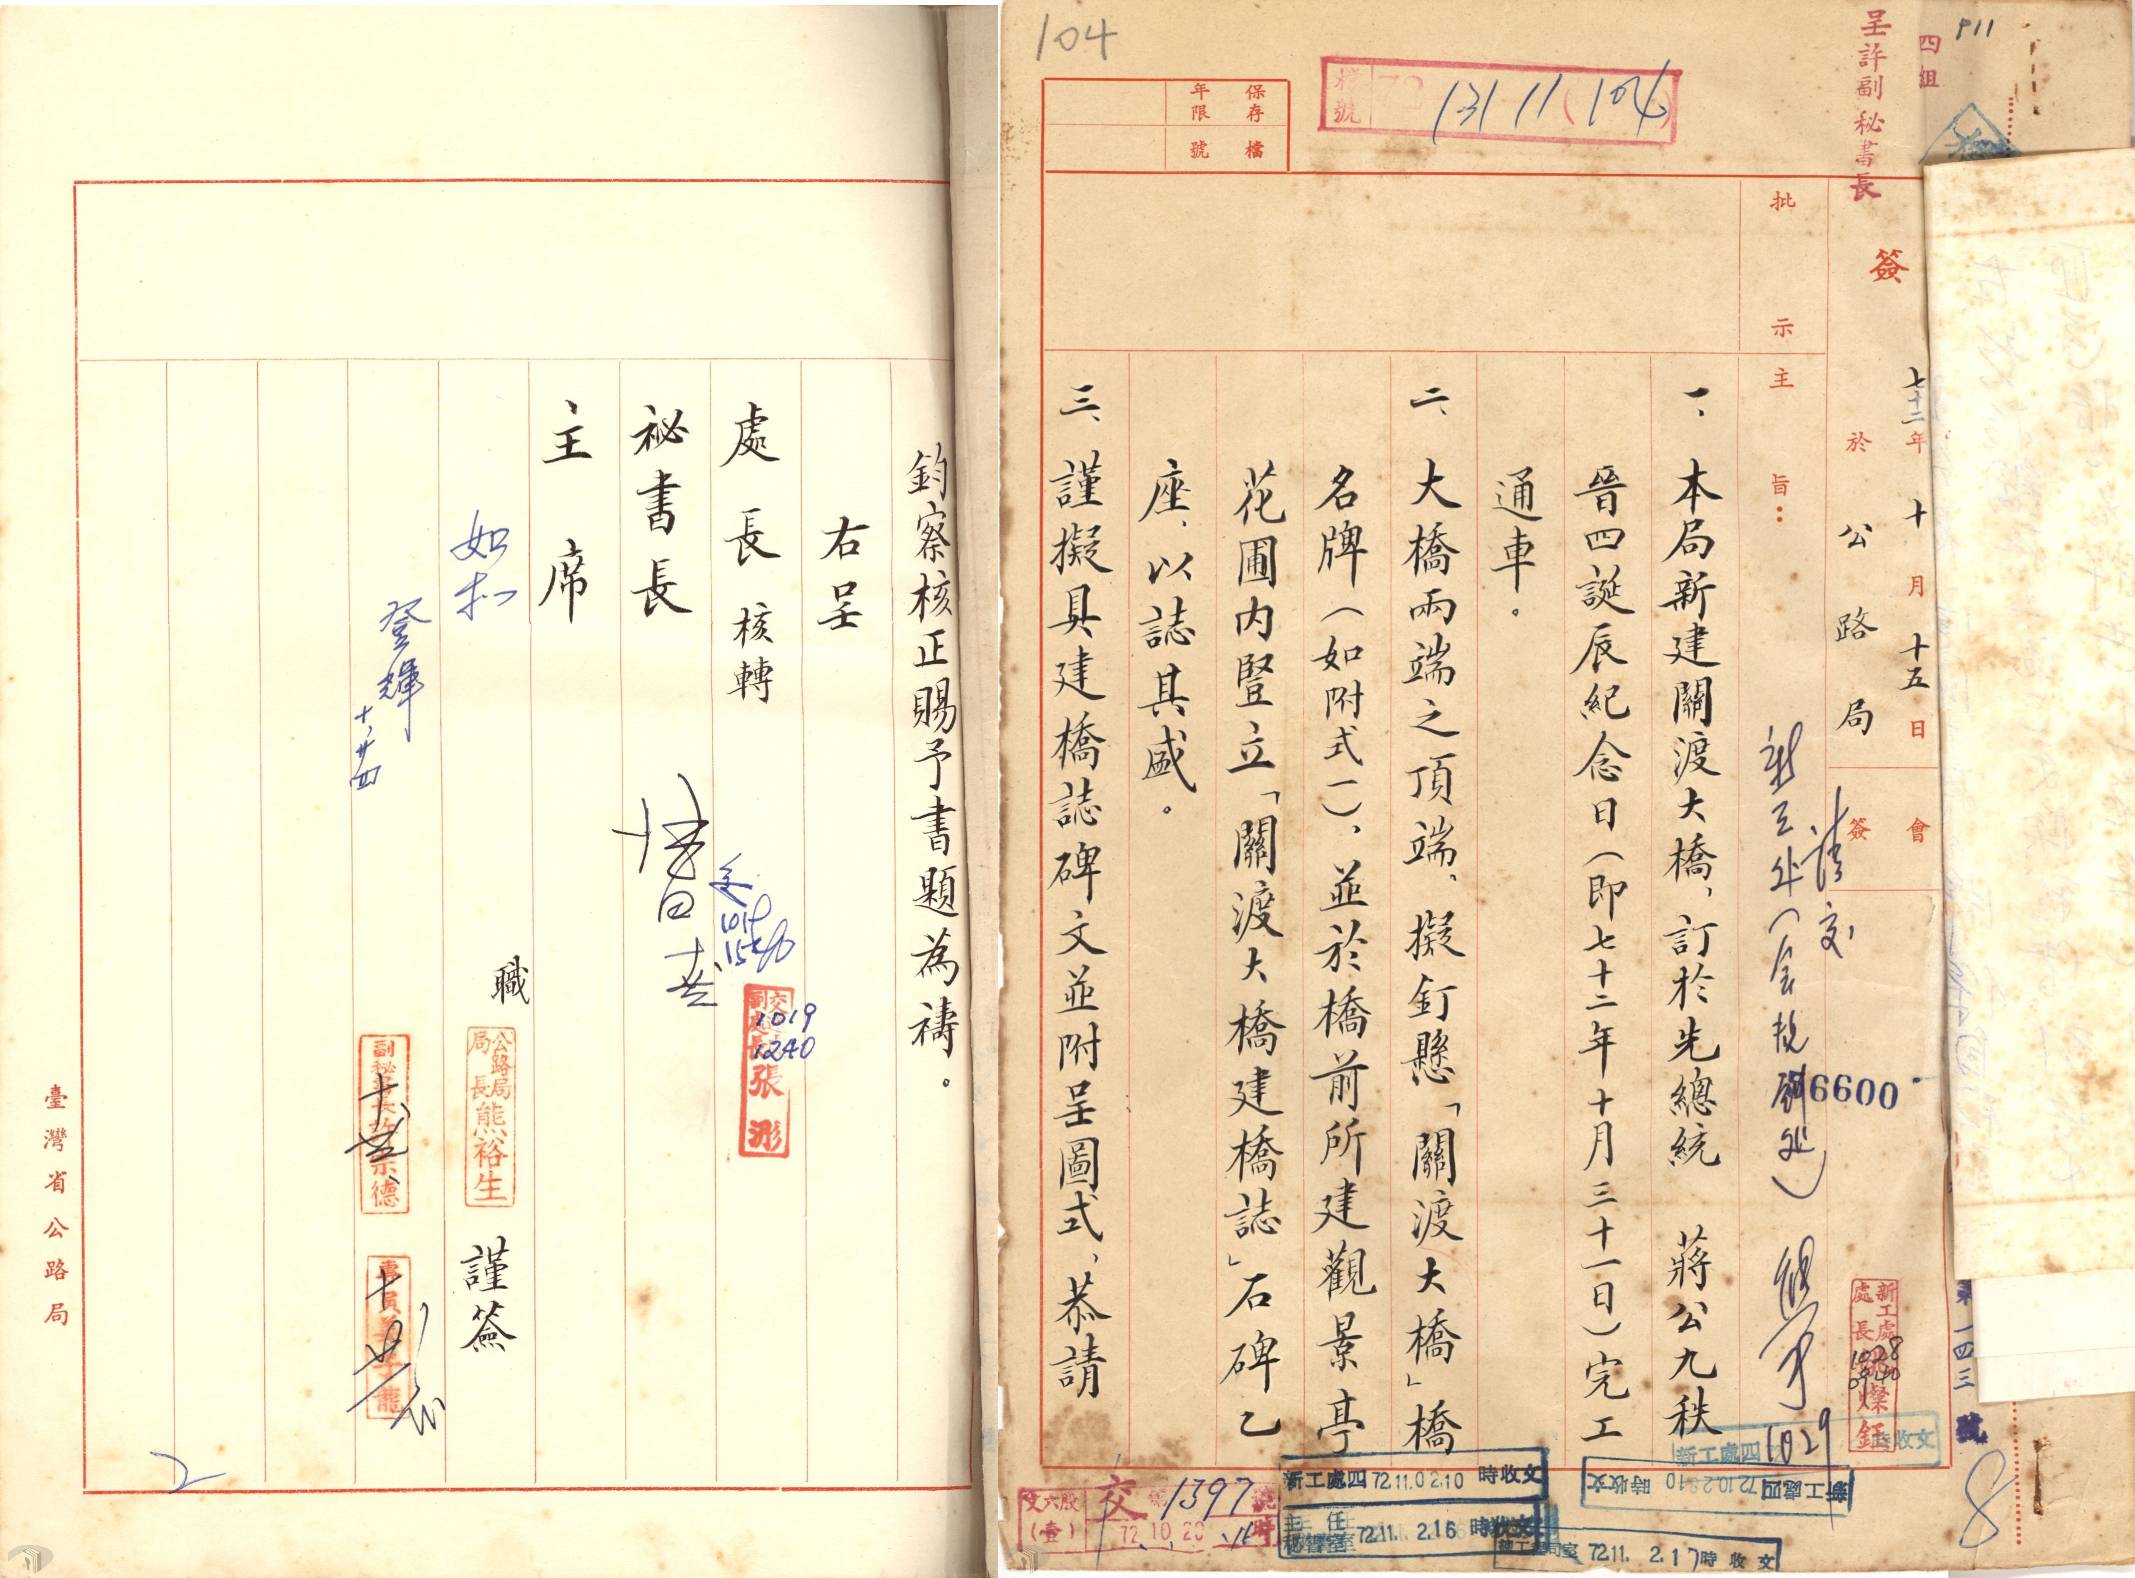 104
檔號 72 13111(104)
呈許副秘書長
四組
P11
保存年限
檔號
簽
七十二年十月十五日
於公路局
會簽
批示
主旨：
6600
一、本局新建關渡大橋，訂於先總統　蔣公九秩
晉四誕辰紀念日（即七十二年十月三十一日）完工
通車。
二、大橋兩端之頂端，擬釘懸「關渡大橋」橋
名牌（如附式一），並於橋前所建觀景亭
花圃內豎立「關渡大橋建橋誌」石碑乙
座，以誌其盛。
三、謹擬具建橋誌碑文並附呈圖式，恭請
新工處處長
1028
0940
1029
一四三號
8
新工處四 72.10.2 10時收文
新工處四 72.11.02.10時收文
主任秘書室 72.11. 2.16時收文
72.11. 2.17時收文
文六股(壹) 交 1397號
72.10.20 時
鈞察核正賜予書題為禱。
右呈
處長 核轉
秘書長
主席
如擬
登輝 十、廿四
1019
1240
張
職
公路局局長熊裕生
謹簽
副秘書長許宗德
臺灣省公路局
2